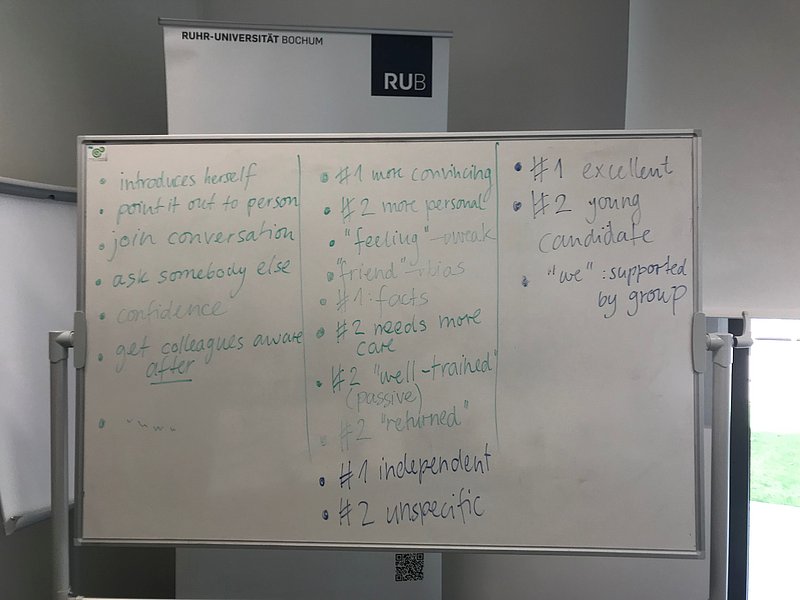 RUHR-UNIVERSITÄT BOCHUM
RUB
• introduces herself
• point it out to person
• join conversation
• ask somebody else
• confidence
• get colleagues aware
after
• #1 more convincing
• #2 more personal
• "feeling" → weak
• "friend" → bias
• #1: facts
• #2 needs more
care
• #2 "well-trained"
(passive)
• #2 "returned"
• #1 independent
• #2 unspecific
• #1 excellent
• #2 young
candidate
• "we" : supported
by group